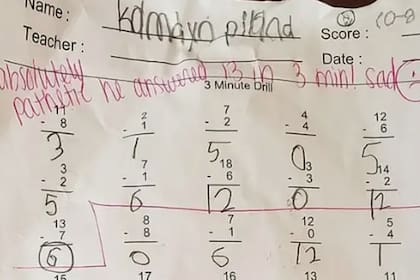 Name : Kamdyn piland
Teacher :
Score :
Date :
absolutely
pathetic he answered 13 in 3 min! sad
3 Minute Drill
17 2 7 4 12
- 8 - 1 - 2 - 4 - 6
3 1 5 0 5
3 7 18 3 14
- 2 - 1 - 6 - 3 - 2
5 6 12 0 12
13 8 7 12 5
- 7 - 8 - 1 - 0 - 4
6 0 6 12 1
15 17 16 13 11